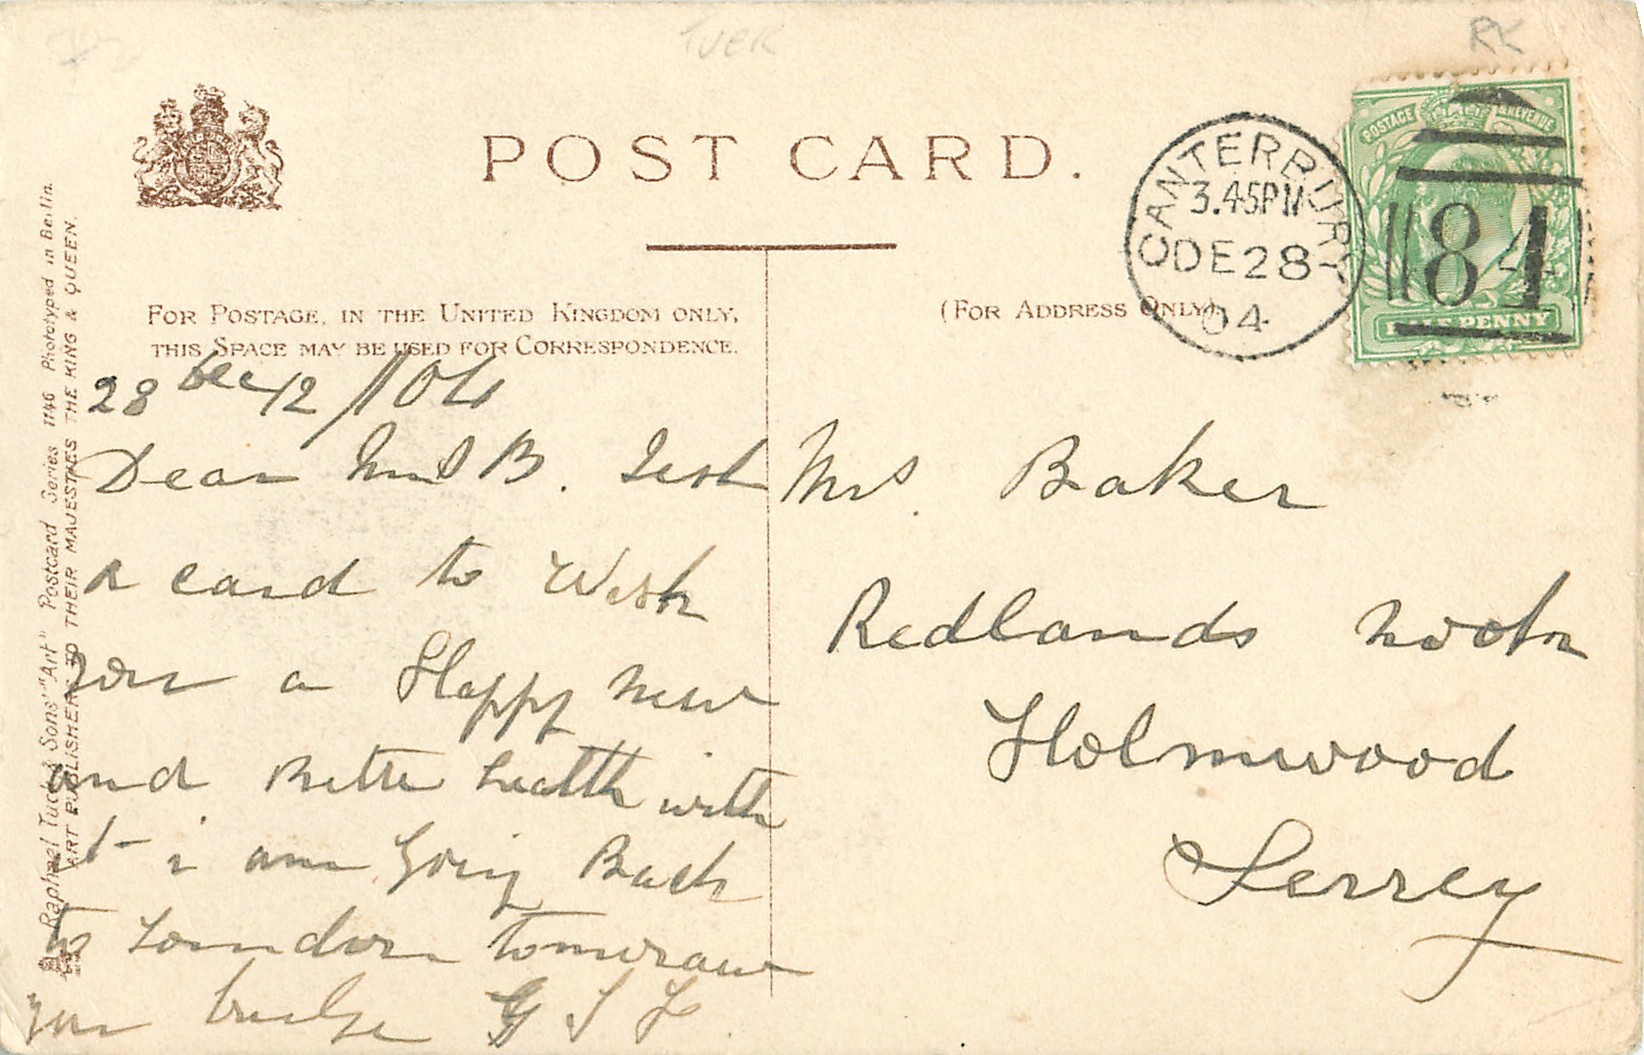 TUCK
RK
POST CARD.
CANTERBURY
3.45PM
DE 28
04
POSTAGE REVENUE
84
HALF PENNY
FOR POSTAGE, IN THE UNITED KINGDOM ONLY,
THIS SPACE MAY BE USED FOR CORRESPONDENCE.
(FOR ADDRESS ONLY).
Raphael Tuck & Sons' "Art" Postcard Series 1146 Phototyped in Berlin.
ART PUBLISHERS TO THEIR MAJESTIES THE KING & QUEEN.
28 Dec 12/104
Dear Mrs B. Jest
a card to Wish
you a Happy new
and Better health with
it i am going Back
to London tomoraw
your G S F
Mrs Baker
Redlands
Holmwood
Serrey